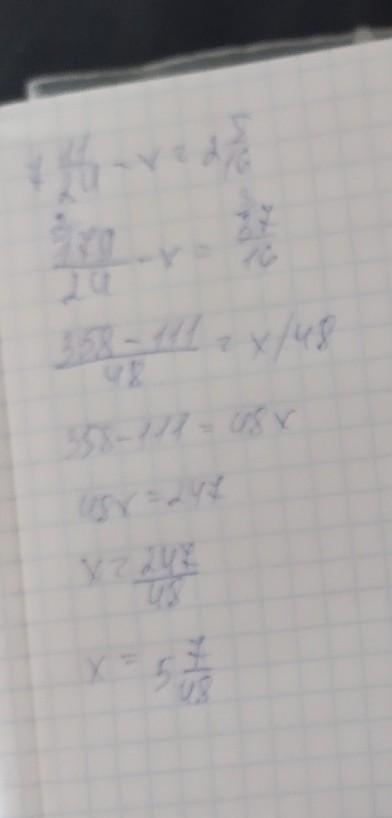 7 11/24 - x = 2 5/16
179/24 - x = 37/16
358 - 111/48 = x /48
358 - 111 = 48x
48x = 247
x = 247/48
x = 5 7/48